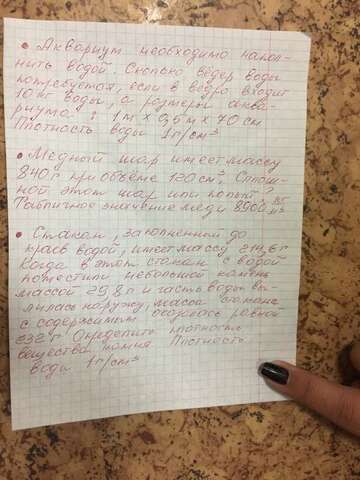 • Аквариум необходимо напол-
нить водой. Сколько ведер воды
потребуется, если в ведро входит
10 кг воды, а размеры аква-
риума: 1м × 0,5м × 70 см
Плотность воды 1 г/см³
• Медной шар имеет массу
840 г при объёме 120 см³. Сплош-
ной этот шар или полый?
Табличное значение меди 8900 кг/м³
• Стакан, заполненный до
краев водой, имеет массу 214,6 г
Когда в этот стакан с водой
поместили небольшой камень
массой 29,8 г и часть воды вы-
лилась наружу, масса стакана
с содержимым оказалась равной
232 г Определить плотность
вещества камня Плотность
воды 1 г/см³